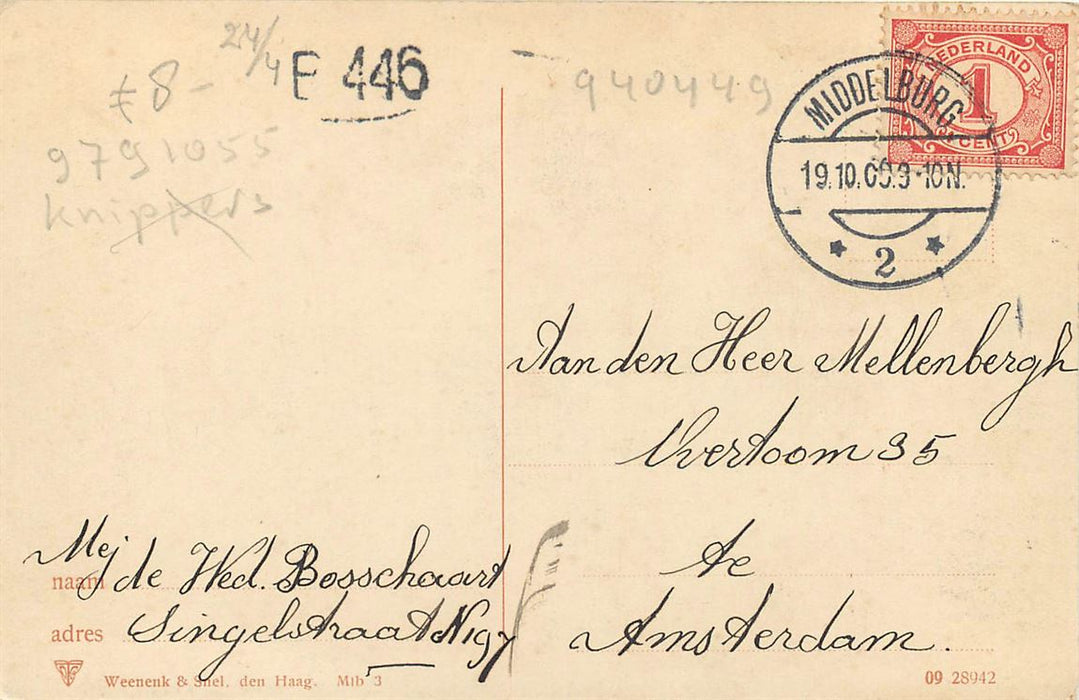 24/4
F 446
€8-
9791055
knippers
940449
NEDERLAND
1
CENT
MIDDELBURG
19.10.09.9-10N.
2
Aan den Heer Mellenbergh
Overtoom 35
te
Amsterdam.
Mej de Wed. Bosschaart
naam
Singelstraat
adres
Weenenk & Snel, den Haag. Mlb 3
09 28942